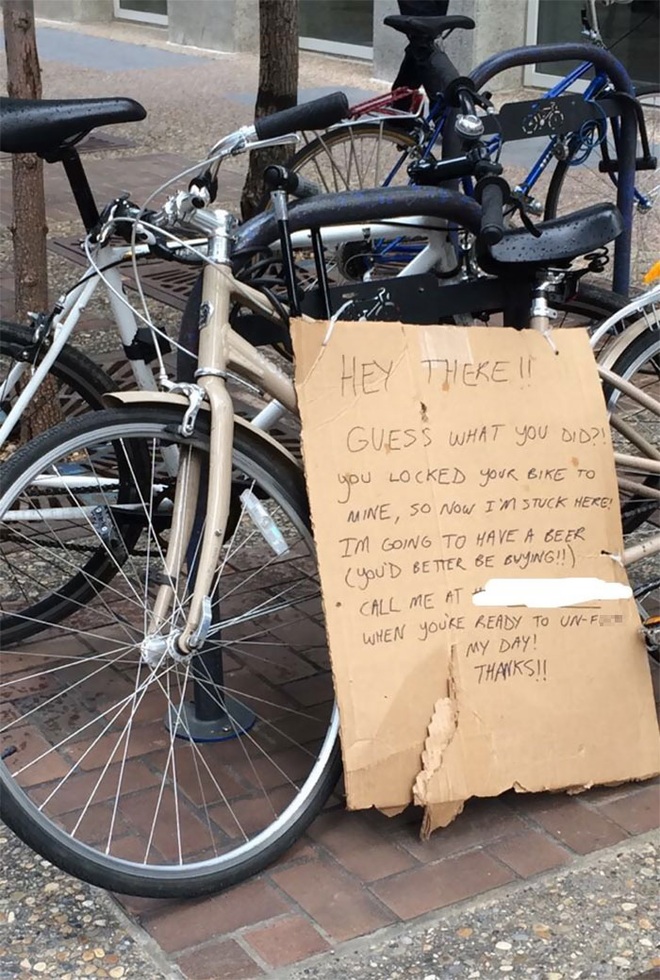 HEY THERE!!
GUESS WHAT YOU DID?!
YOU LOCKED YOUR BIKE TO
MINE, SO NOW I'M STUCK HERE!
IM GOING TO HAVE A BEER
(YOU'D BETTER BE BUYING!!)
CALL ME AT
WHEN YOU'RE READY TO UN-F
MY DAY!
THANKS!!